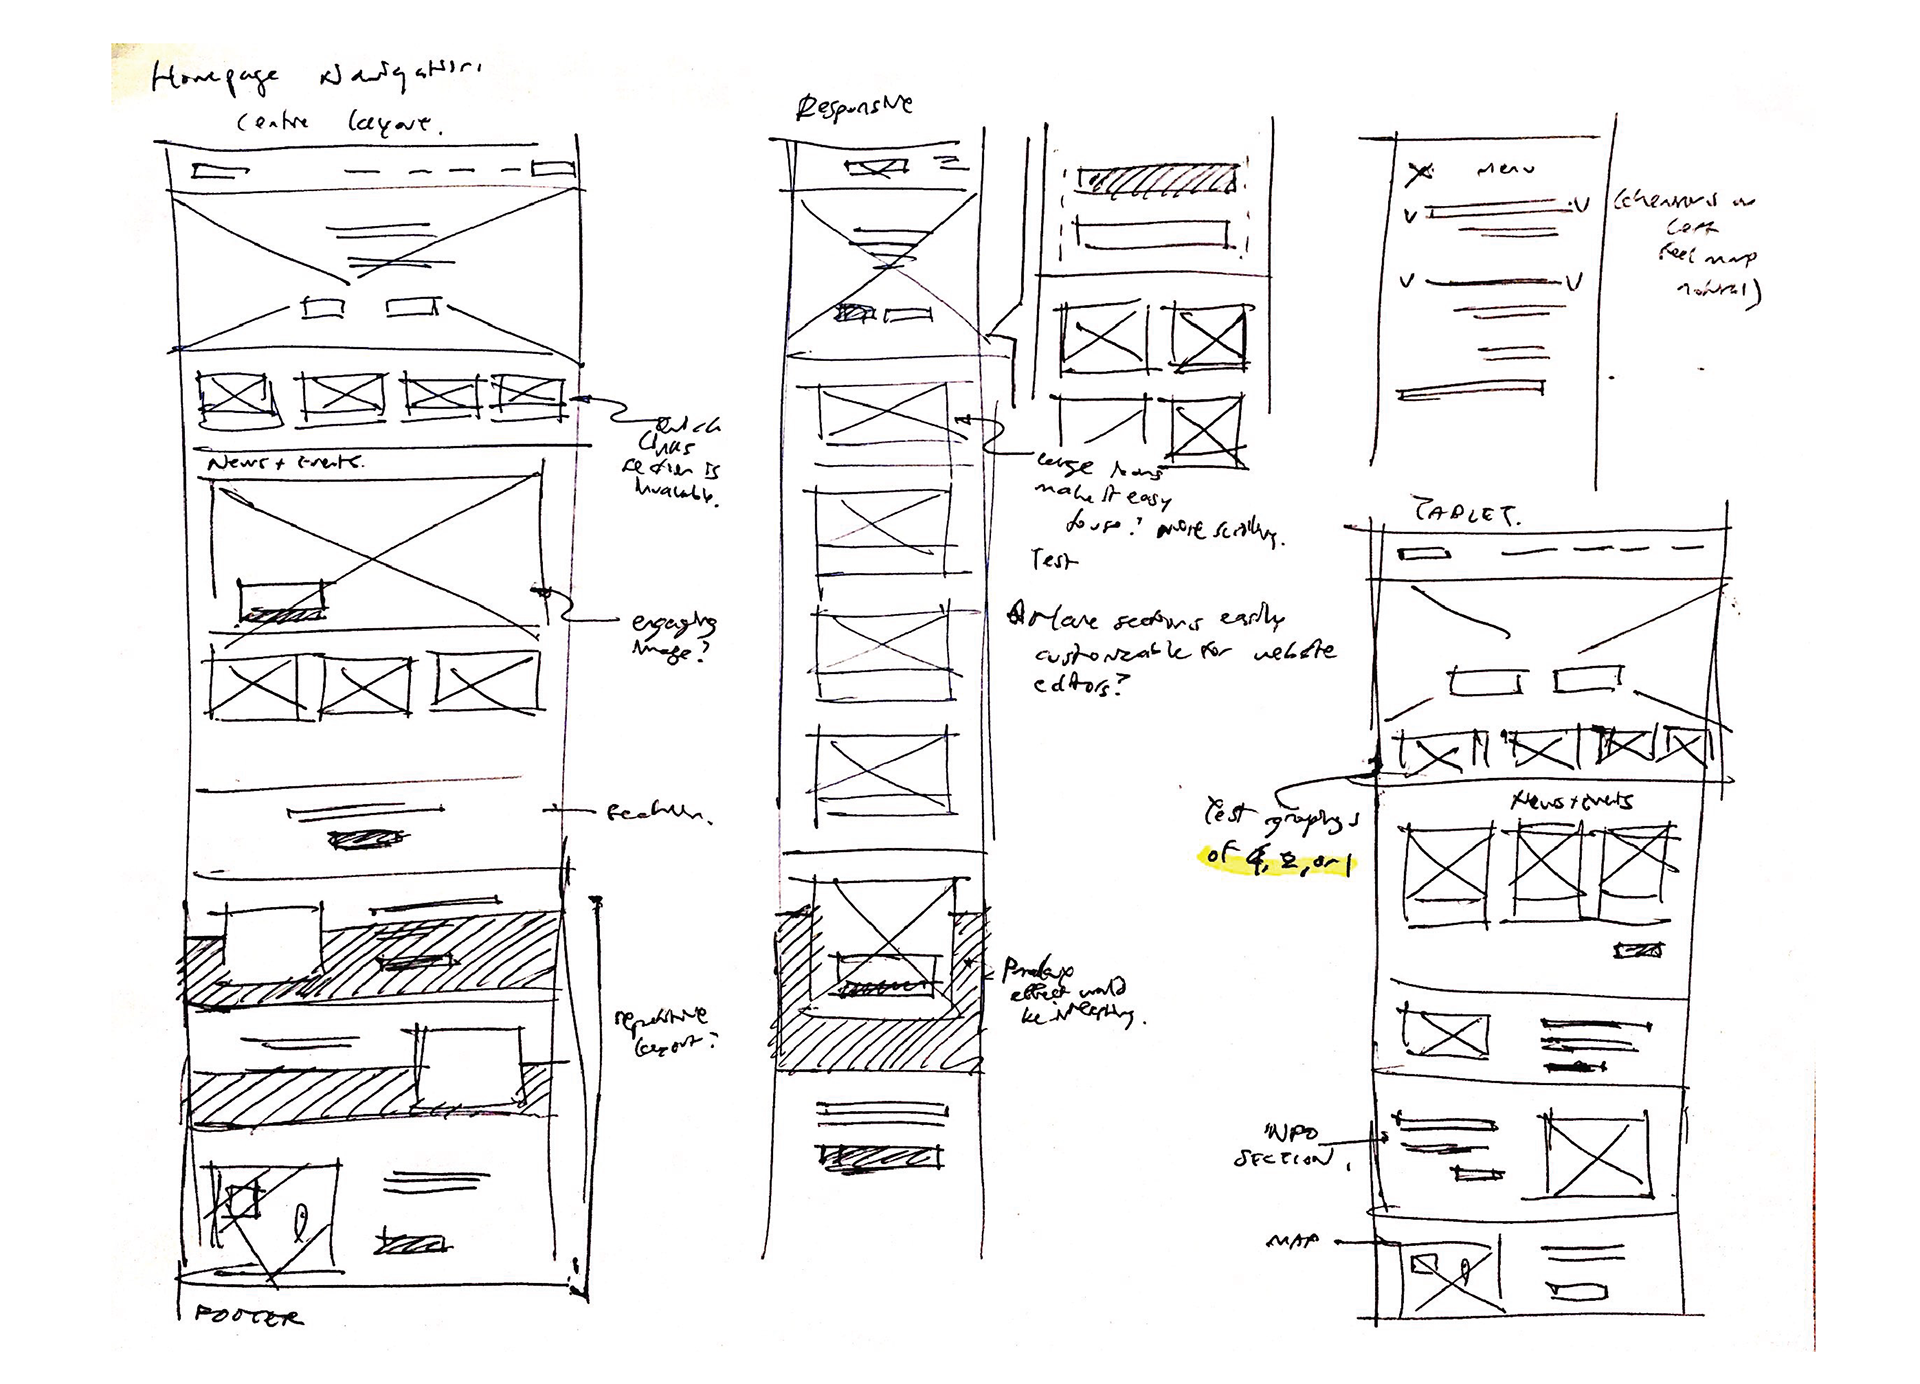 Homepage Navigation.
Centre Layout.
Quick
links
section is
invaluable.
News + Events.
engaging
image?
section.
repetitive
layout?
FOOTER
Responsive
Large items
make it easy
to use? more scrolling.
Test
Make sections easily
customizable for website
editors?
Parallax
effect would
be interesting.
Menu
(chevrons on
left
feel more
natural)
TABLET.
Test graphys
of 4, 2, or 1
News + Events
INFO
SECTION.
MAP